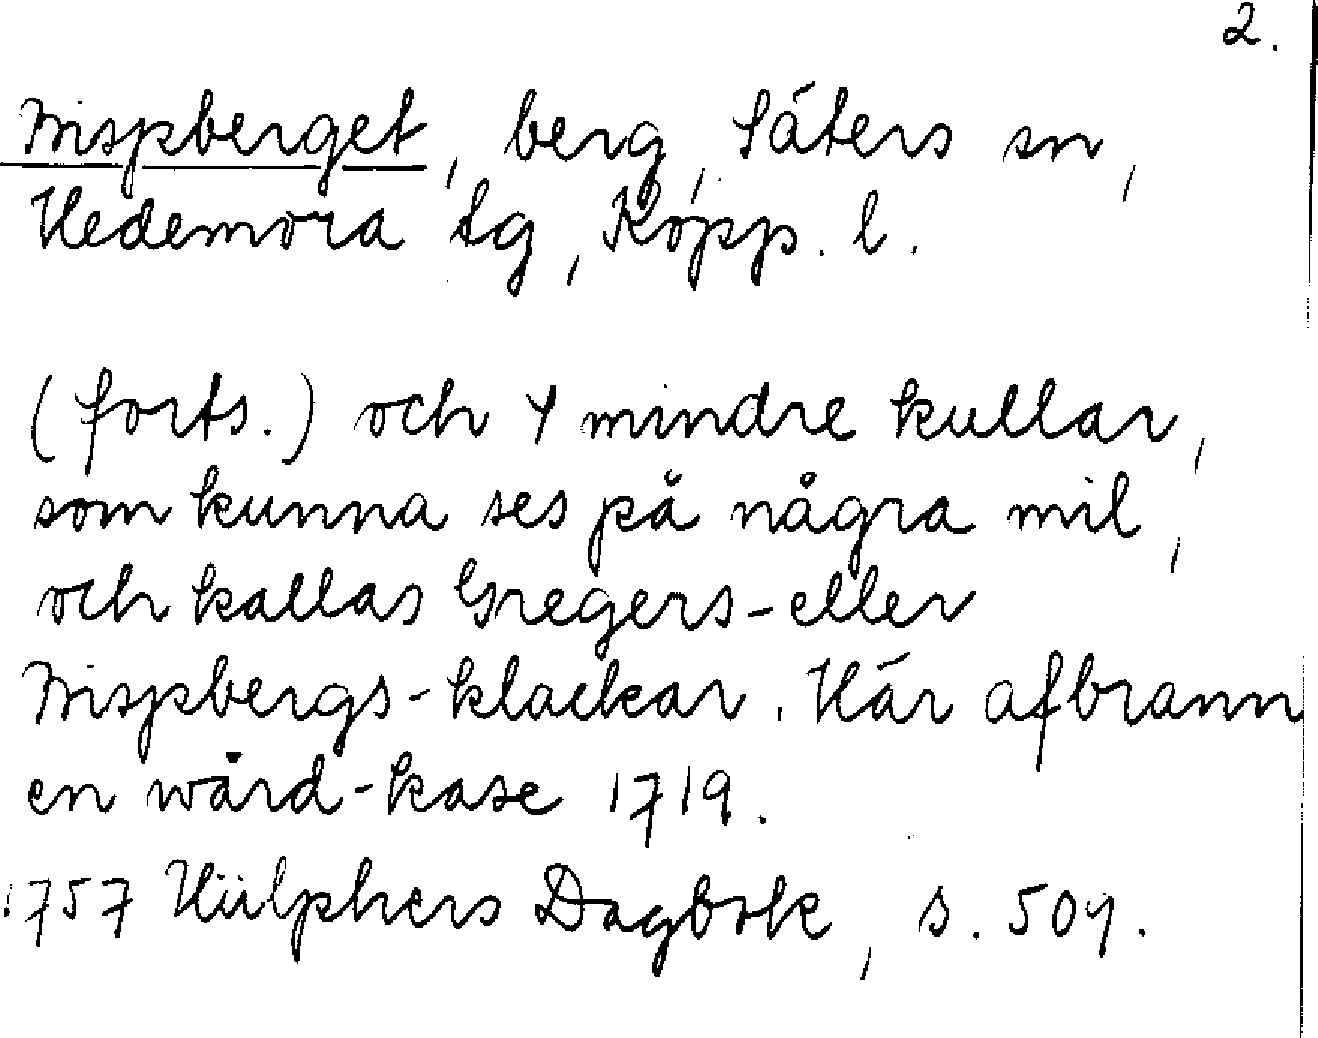 2.
Wispberget, berg, Säters sn,
Hedemora tg, Kopp. l.
(forts.) och 4 mindre kullar,
som kunna ses på några mil,
och kallas Gregers-eller
Wispbergs-klackar. Här afbrann
en wård-kase 1719.
1757 Hülphers Dagbok, s. 504.